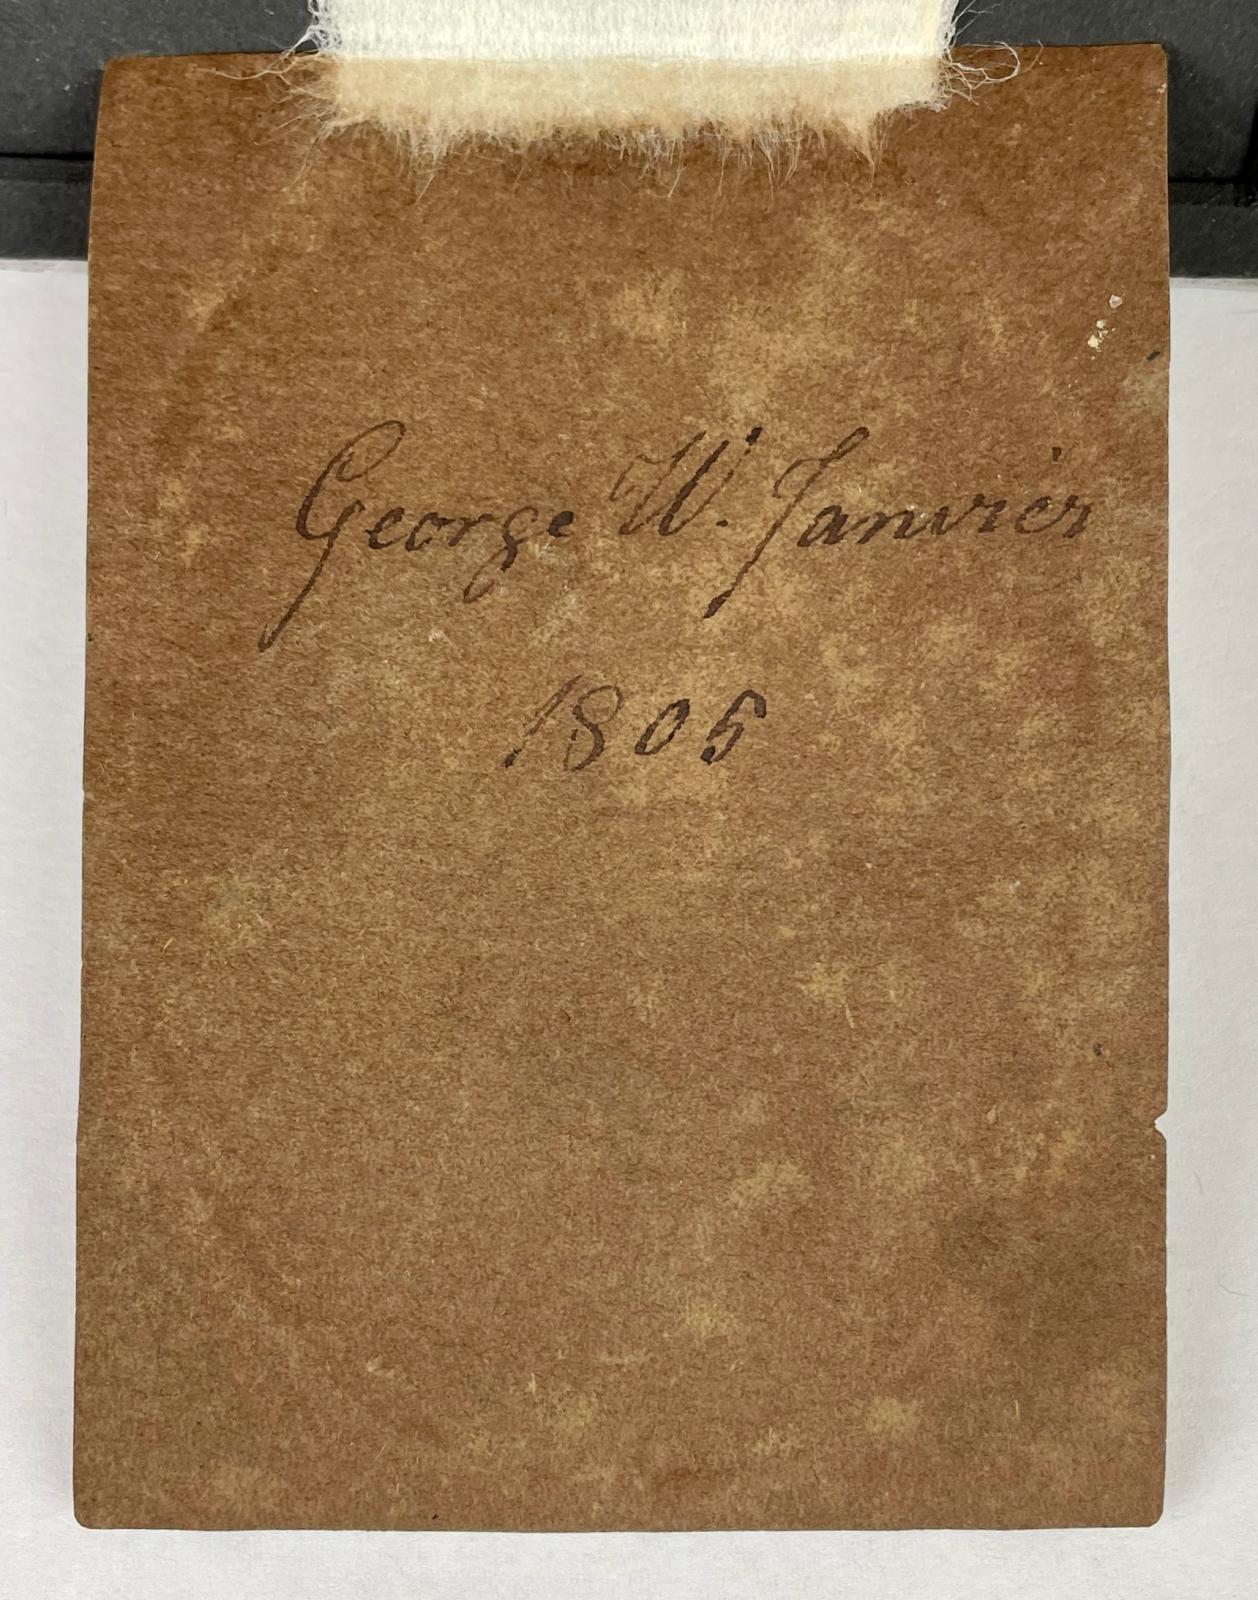 George W. Janvier
1805